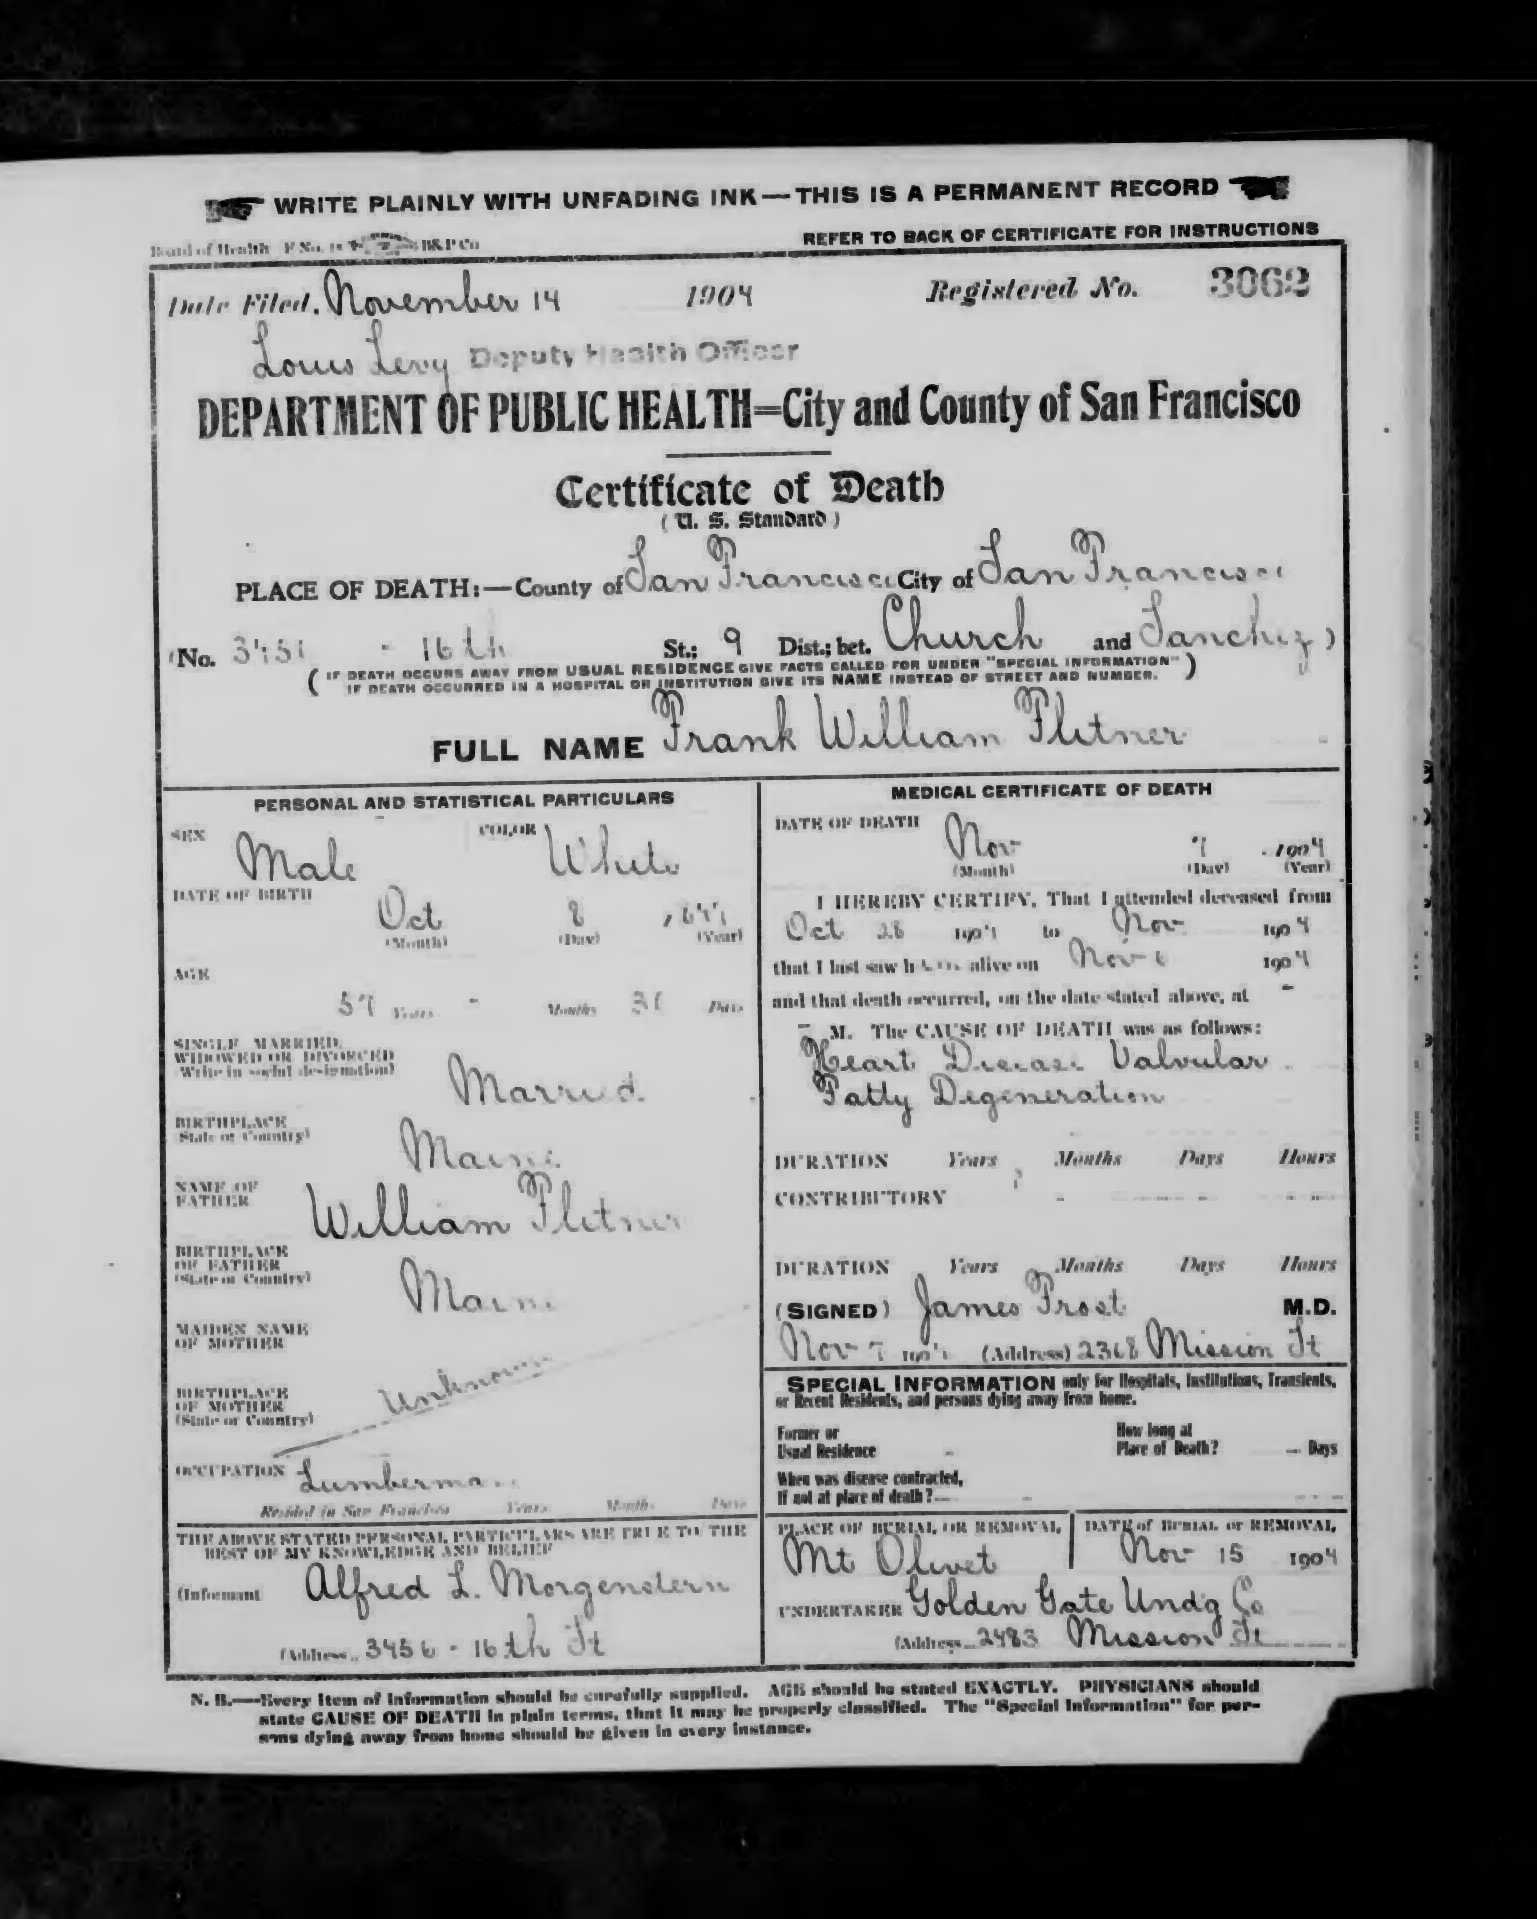 WRITE PLAINLY WITH UNFADING INK—THIS IS A PERMANENT RECORD
Board of Health F. No. B&P Co
REFER TO BACK OF CERTIFICATE FOR INSTRUCTIONS
Date Filed, November 14 1904 Registered No. 3062
Louis Levy Deputy Health Officer
DEPARTMENT OF PUBLIC HEALTH=City and County of San Francisco
Certificate of Death
(U. S. Standard)
PLACE OF DEATH:—County of San Francisco City of San Francisco
(No. - 16th St.; 9 Dist.; bet. Church and Sanchez)
(IF DEATH OCCURS AWAY FROM USUAL RESIDENCE GIVE FACTS CALLED FOR UNDER "SPECIAL INFORMATION"
IF DEATH OCCURRED IN A HOSPITAL OR INSTITUTION GIVE ITS NAME INSTEAD OF STREET AND NUMBER.)
FULL NAME Frank William Flitner
PERSONAL AND STATISTICAL PARTICULARS
SEX Male COLOR White
DATE OF BIRTH
Oct 8
(Month) (Day) (Year)
AGE
57 Years - Months Days
SINGLE, MARRIED,
WIDOWED OR DIVORCED
(Write in social designation) Married
BIRTHPLACE
(State or Country) Maine
NAME OF
FATHER William Flitner
BIRTHPLACE
OF FATHER
(State or Country) Maine
MAIDEN NAME
OF MOTHER
BIRTHPLACE
OF MOTHER
(State or Country) Unknown
OCCUPATION Lumberman
Resided in San Francisco Years Months Days
THE ABOVE STATED PERSONAL PARTICULARS ARE TRUE TO THE
BEST OF MY KNOWLEDGE AND BELIEF
(Informant Alfred L. Morgenstern
(Address 3456 - 16th St
MEDICAL CERTIFICATE OF DEATH
DATE OF DEATH
Nov 7 1904
(Month) (Day) (Year)
I HEREBY CERTIFY, That I attended deceased from
Oct 28 1904 to Nov 1904
that I last saw him alive on Nov 6 1904
and that death occurred, on the date stated above, at -
- M. The CAUSE OF DEATH was as follows:
Heart Disease Valvular
Fatty Degeneration
DURATION Years Months Days Hours
CONTRIBUTORY
DURATION Years Months Days Hours
(SIGNED) James Frost M.D.
Nov 7 1904 (Address) 2368 Mission St
SPECIAL INFORMATION only for Hospitals, Institutions, Transients,
or Recent Residents, and persons dying away from home.
Former or
Usual Residence
How long at
Place of Death? — Days
When was disease contracted,
If not at place of death?
PLACE OF BURIAL OR REMOVAL DATE of BURIAL or REMOVAL
Mt Olivet Nov 15 1904
UNDERTAKER Golden Gate Undg Co
(Address 2483 Mission St
N. B.—Every item of information should be carefully supplied. AGE should be stated EXACTLY. PHYSICIANS should
state CAUSE OF DEATH in plain terms, that it may be properly classified. The "Special Information" for per-
sons dying away from home should be given in every instance.